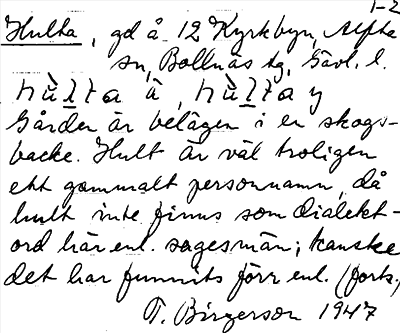 1-2
Hulta, gd å 12 Kyrkbyn, Alfta
sn, Bollnäs tg, Gävl. l.
hùlta ä, hùltaŋ
Gården är belägen i en skogs-
backe. Hult är väl troligen
ett gammalt personnamn, då
hult inte finns som dialekt-
ord här enl. sagesmän; kanske
det har funnits förr enl. (forts.)
T. Birgerson 1947